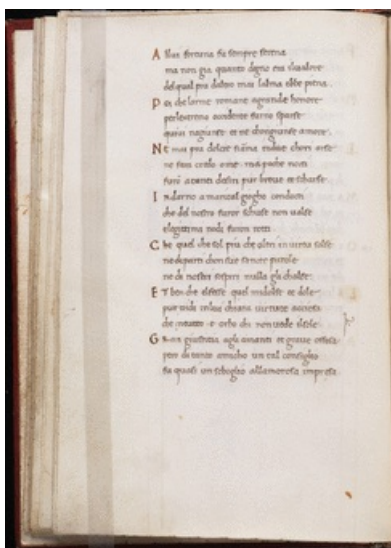 A lma fortuna fu sempre serena
ma non gia quanto degno era il valore
del qual piu daltro mai lalma ebbe piena
P oi che larme romane agrande honore
per lextremo occidente furno sparse
quivi nagiunse et ne chongiunse amore
N e mai piu dolce fiama induo chori arse
ne fara credo ome ma poche notti
furon atanti desiri pur breve et scharse
I ndarno a marital giogho condotti
che del nostro furor schuse non valse
elegittima nodi furon rotti
C he quel che sol piu che altri in virtu valse
ne diparti chon sue sancte parole
ne di nostri sospiri nulla gli chalse
E T ben che elfesse quel midolse et dole
pur vidi inlui chiara virtute accesa
che intutto e orbo chi non vede il sole
G ran giustitia agli amanti et grave offesa
pero di tanto amicho un tal consiglio
fu quasi un schoglio allamorosa impresa